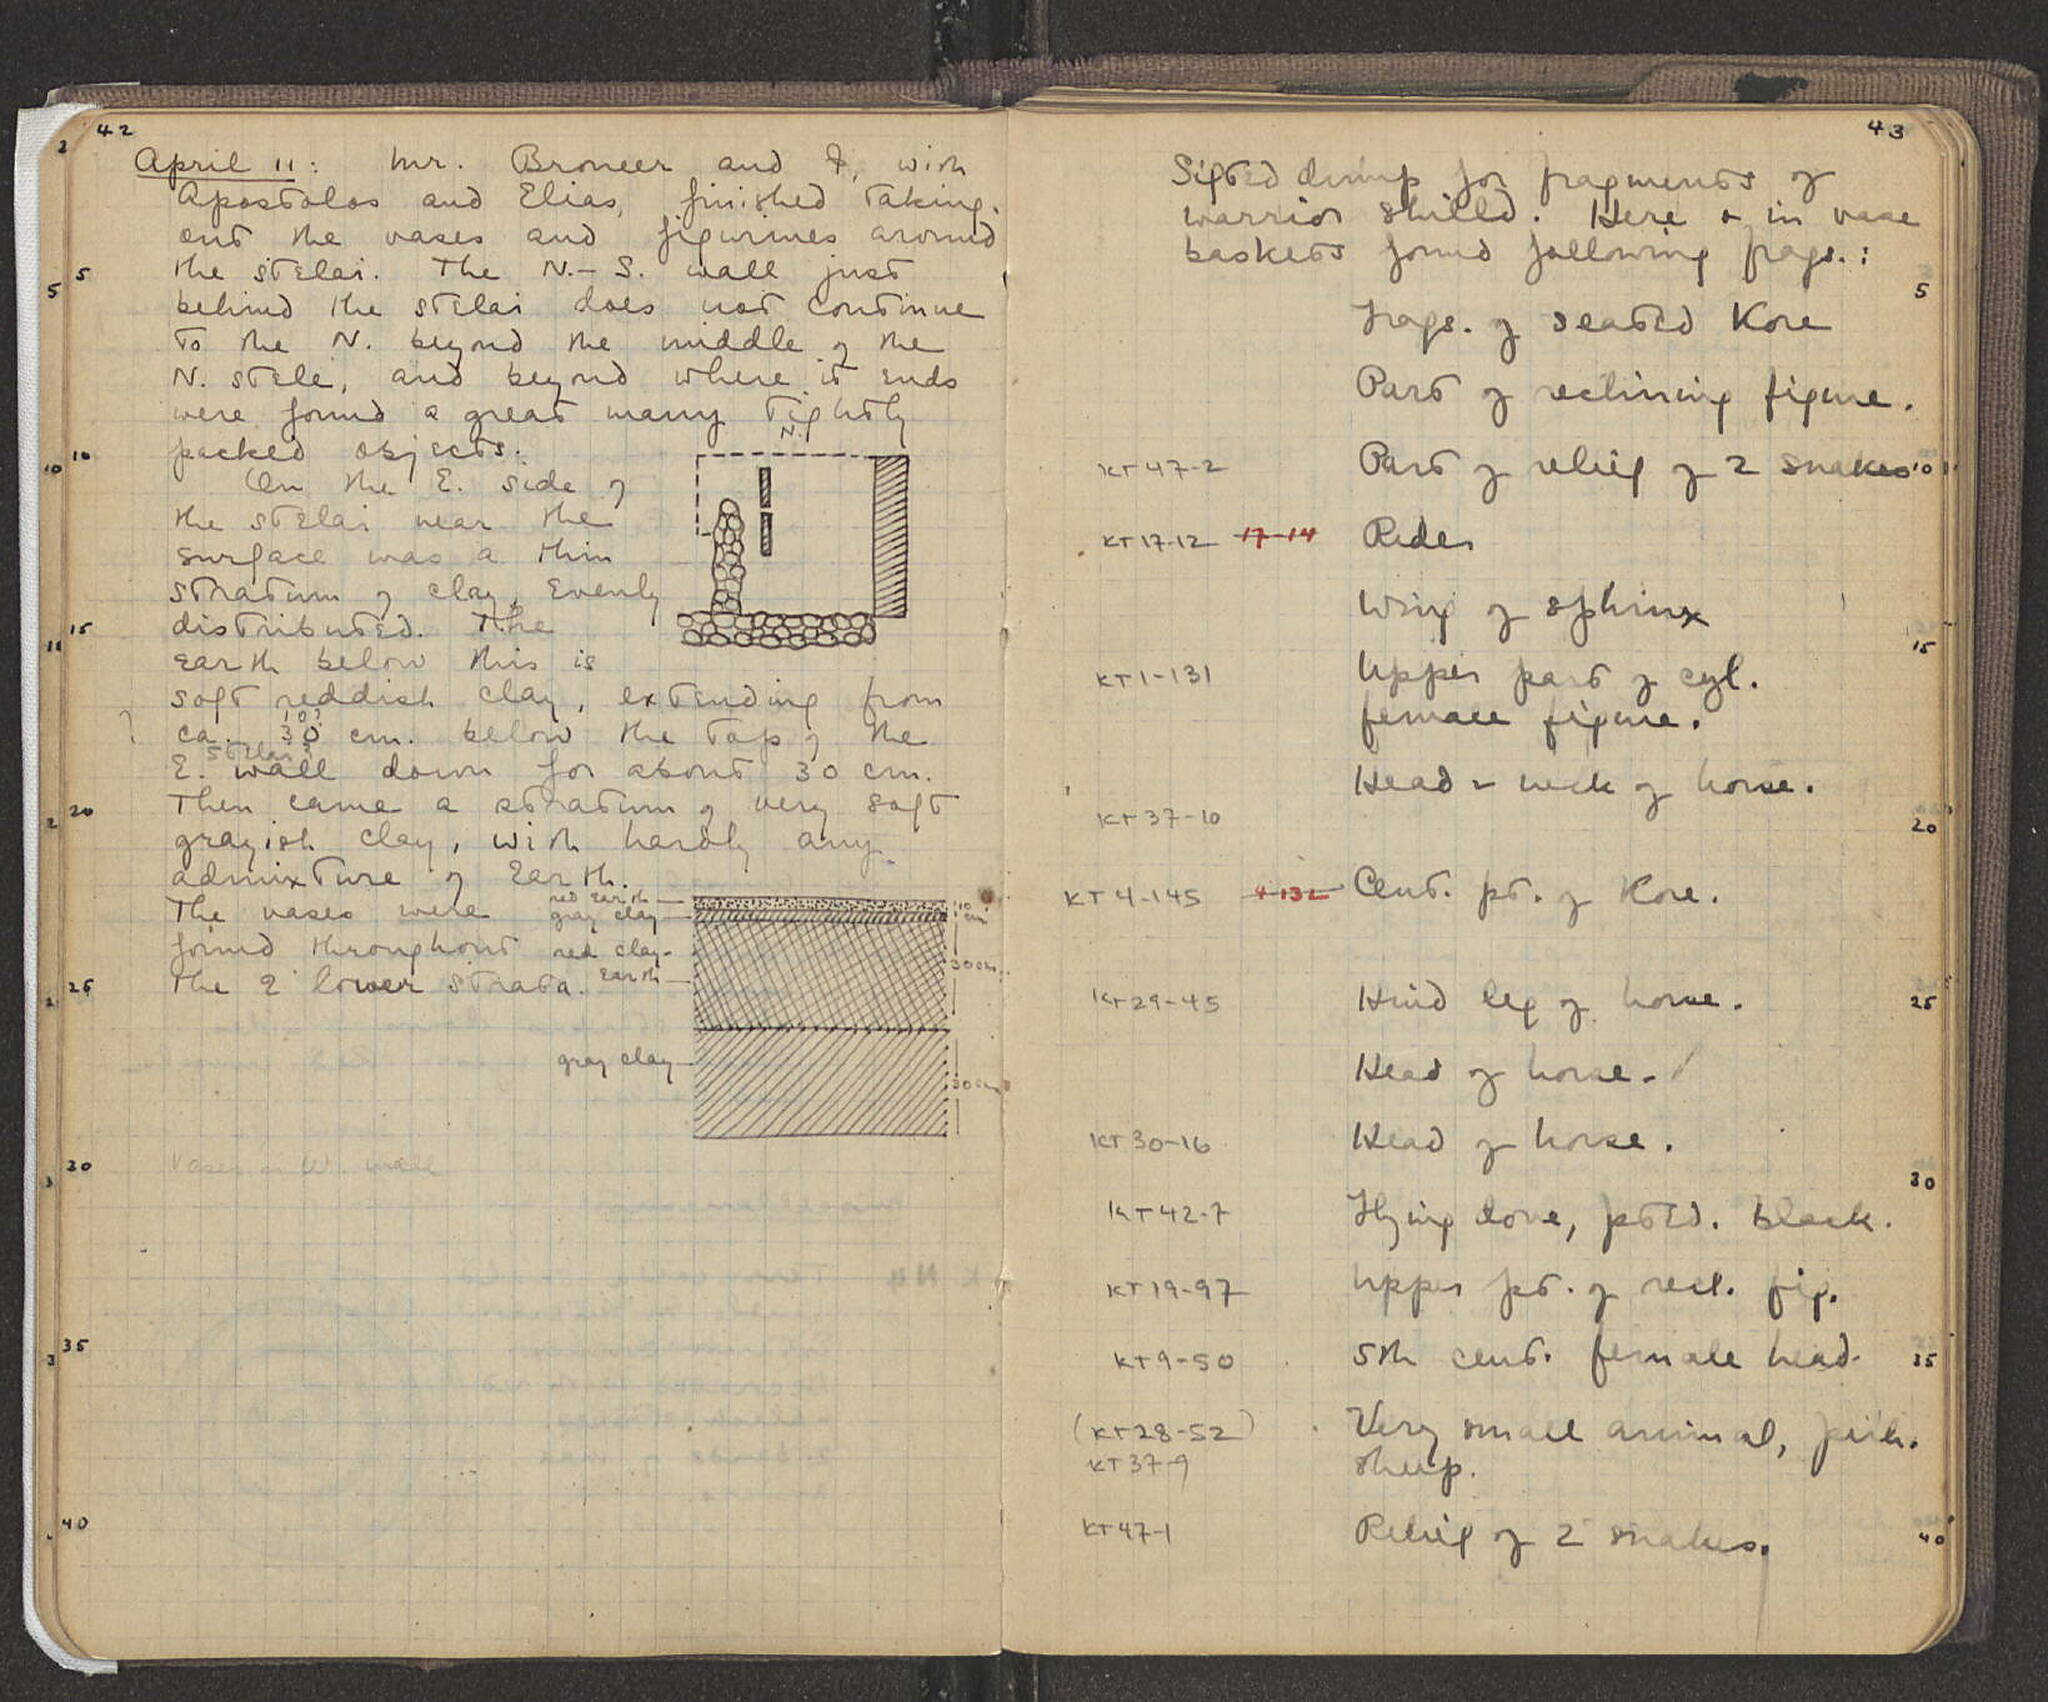 42
April 11: Mr. Broneer and I, with
Apostolos and Elias, finished taking
out the vases and figurines around
the stelai. The N.-S. wall just
behind the stelai does not continue
to the N. beyond the middle of the
N. stele, and beyond where it ends
were found a great many tightly
packed objects.
N.
On the E. side of
the stelai near the
surface was a thin
stratum of clay, evenly
distributed. The
earth below this is
soft reddish clay, extending from
10?
ca. 30 cm. below the top of the
stelai?
E. wall down for about 30 cm.
Then came a stratum of very soft
grayish clay, with hardly any
admixture of earth.
The vases were
found throughout
the 2 lower strata.
red earth
gray clay
red clay-
earth
gray clay
10 cm
30 cm.
30 cm
Vases in W. wall
5
10
15
20
25
30
35
40
43
Sifted dump for fragments of
warrior shield. Here & in vase
baskets found following frags.:
Frags. of seated Kore
Part of reclining figure.
KT 47-2 Part of relief of 2 snakes
KT 17-12 17-14 Rider
Wing of sphinx
KT 1-131 Upper part of cyl.
female figure.
Head & neck of horse.
KT 37-10
KT 4-145 4-132 Cent. pt. of Kore.
KT 29-45 Hind leg of horse.
Head of horse.
KT 30-16 Head of horse.
KT 42-7 Flying dove, ptd. black.
KT 19-97 Upper pt. of recl. fig.
KT 9-50 5th cent. female head.
(KT 28-52) Very small animal, perh.
KT 37-9 sheep.
KT 47-1 Relief of 2 snakes.
5
10
15
20
25
30
35
40